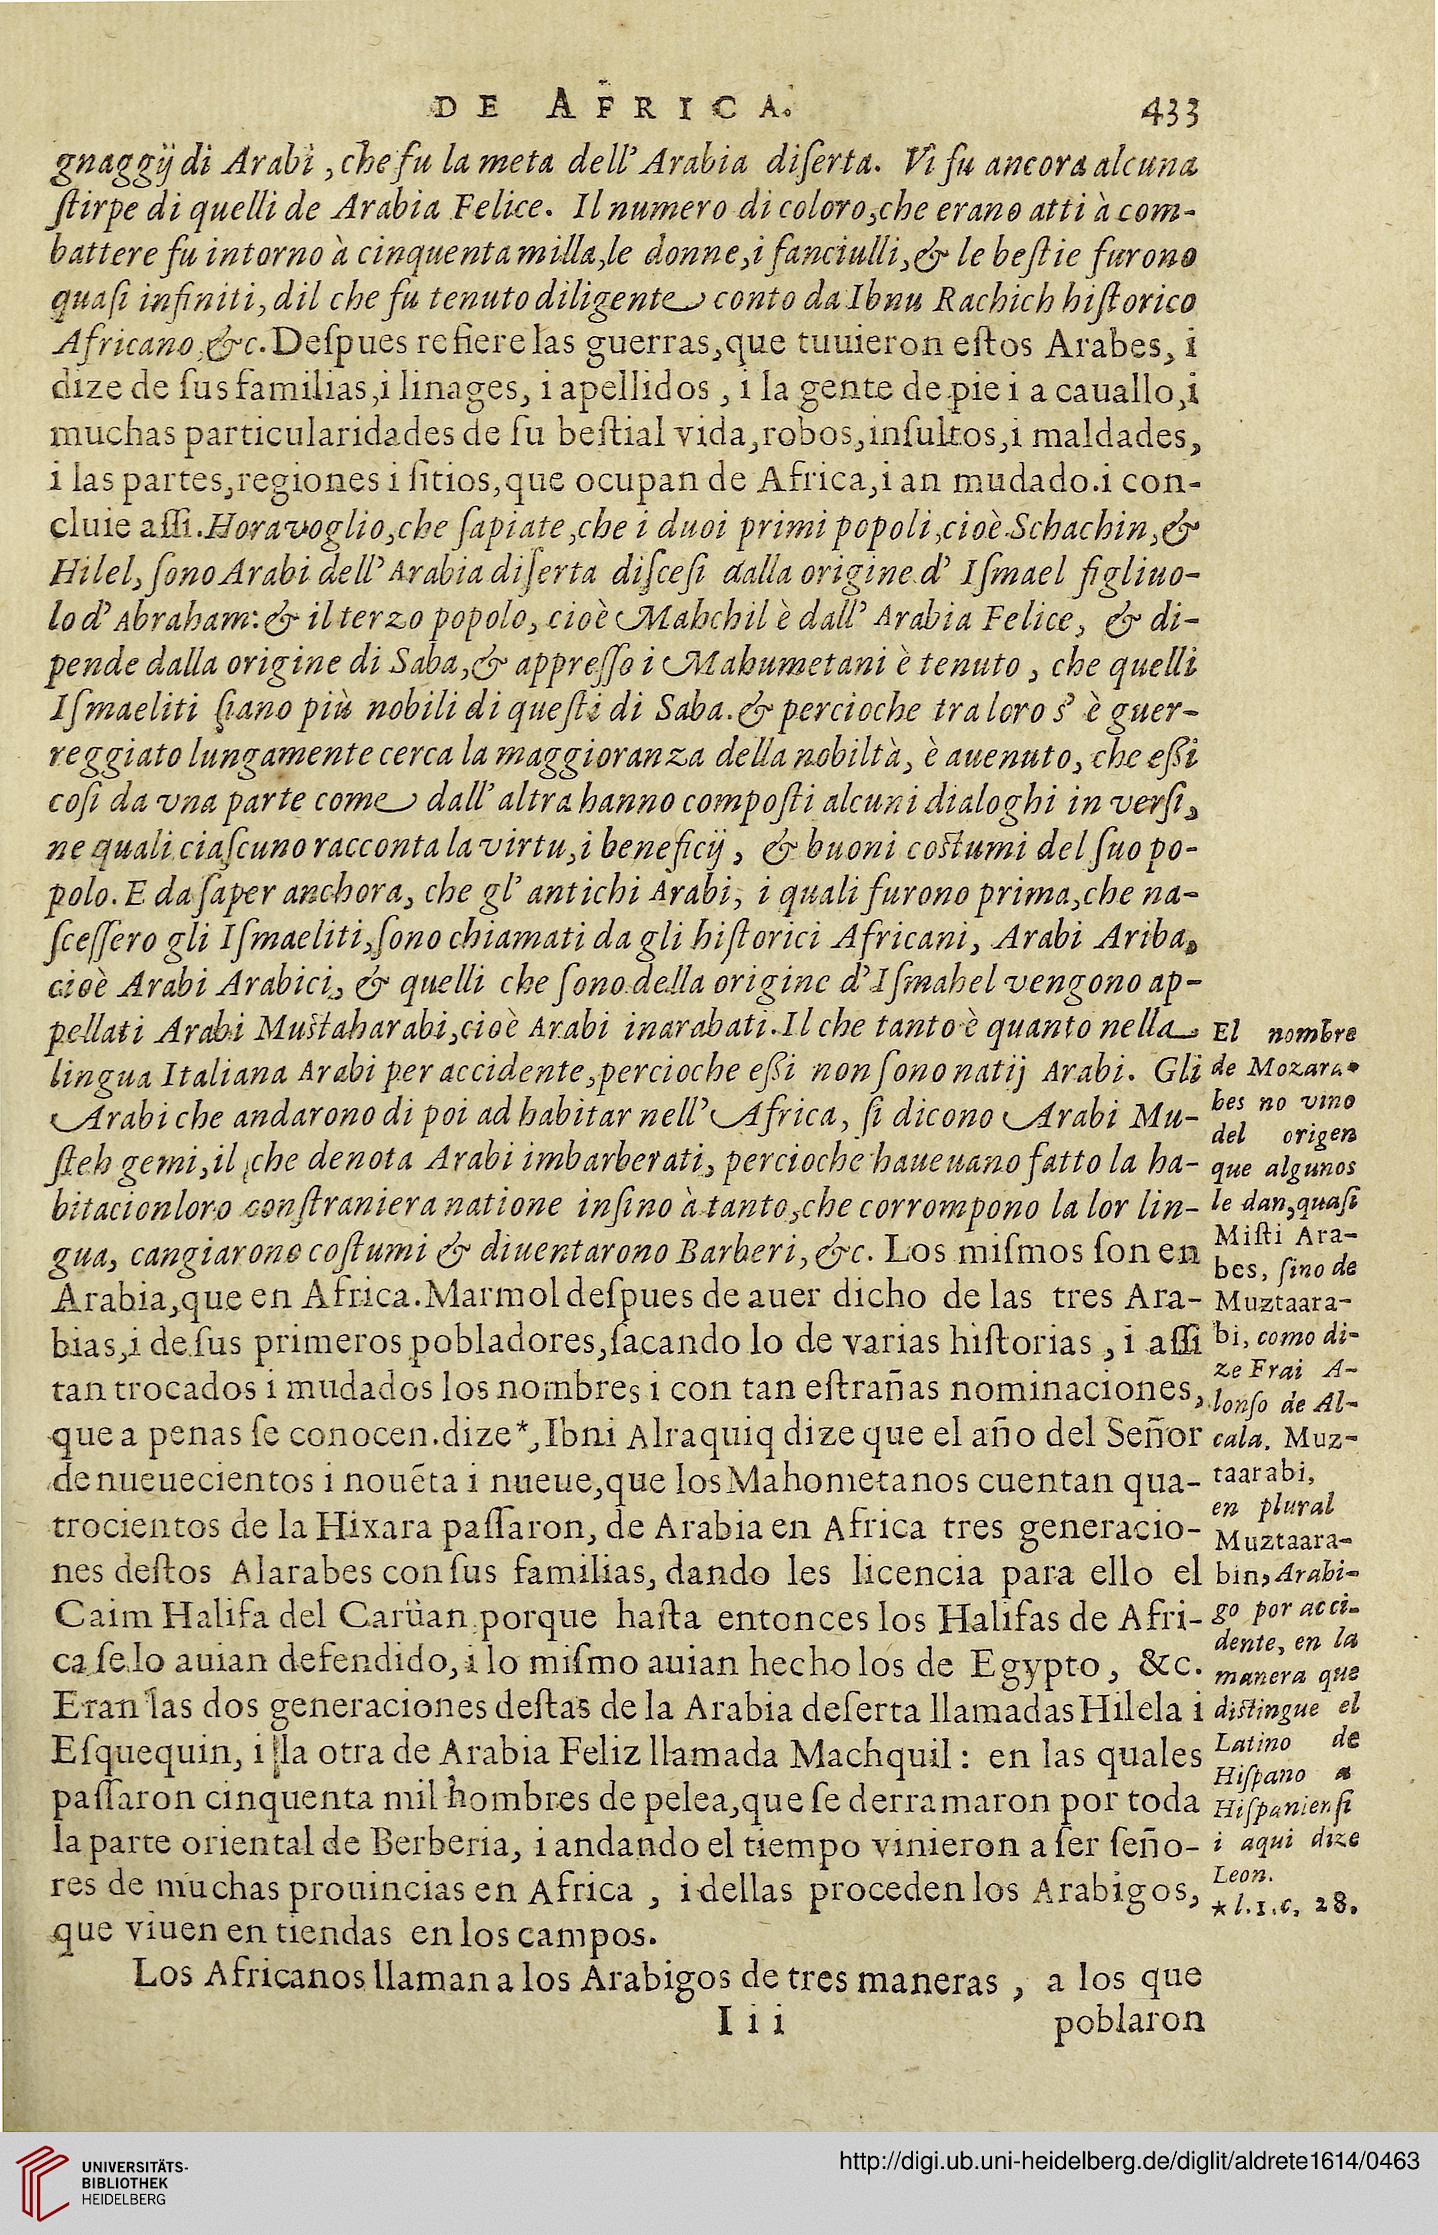 DE AFRICA.
433
gnaggij di Arabi, che fu la meta dell' Arabia diſerta. Vi fu ancora alcuna
ſtirpe di quelli de Arabia Felice. Il numero di coloro,che erano atti à com-
battere fu intorno à cinquenta milla,le donne,i fanciulli,& le beſtie furono
quaſi infiniti, dil che fu tenuto diligente conto da Ibnu Rachich hiſtorico
Africano,&c. Deſpues refiere las guerras,que tuuieron eſtos Arabes, i
dize de ſus familias,i linages, i apellidos, i la gente de pie i a cauallo,i
muchas particularidades de ſu beſtial vida,robos,inſultos,i maldades,
i las partes,regiones i ſitios,que ocupan de Africa,i an mudado.i con-
cluie aſſi.Hora voglio,che ſapiate,che i duoi primi popoli,cioè Schachin,&
Hilel, ſono Arabi dell' Arabia diſerta diſceſi dalla origine d' Iſmael figliuo-
lo d' Abraham:& il terzo popolo, cioè Mahchil è dall' Arabia Felice, & di-
pende dalla origine di Saba,& appreſſo i Mahumetani è tenuto, che quelli
Iſmaeliti ſiano più nobili di queſti di Saba.& percioche tra loro s' è guer-
reggiato lungamente cerca la maggioranza della nobiltà, è auenuto, che eſsi
coſi da vna parte come dall' altra hanno compoſti alcuni dialoghi in verſi,
ne quali ciaſcuno racconta la virtu,i beneficij, & buoni coſtumi del ſuo po-
polo. E da ſaper anchora, che gl' antichi Arabi, i quali furono prima,che na-
ſceſſero gli Iſmaeliti,ſono chiamati da gli hiſtorici Africani, Arabi Ariba,
cioè Arabi Arabici, & quelli che ſono della origine d' Iſmahel vengono ap-
pellati Arabi Muſtaharabi,cioè Arabi inarabati.Il che tanto è quanto nella
lingua Italiana Arabi per accidente,percioche eſsi non ſono natij Arabi. Gli
Arabi che andarono di poi ad habitar nell' Africa, ſi dicono Arabi Mu-
ſteh gemi,il che denota Arabi imbarberati, percioche haueuano fatto la ha-
bitacion loro con ſtraniera natione inſino à tanto,che corrompono la lor lin-
gua, cangiarono coſtumi & diuentarono Barberi,&c. Los miſmos ſon en
Arabia,que en Africa.Marmol deſpues de auer dicho de las tres Ara-
bias,i de ſus primeros pobladores,ſacando lo de varias hiſtorias, i aſſi
tan trocados i mudados los nombres i con tan eſtrañas nominaciones,
que a penas ſe conocen.dize*,Ibni Alraquiq dize que el año del Señor
de nueuecientos i nouẽta i nueue,que los Mahometanos cuentan qua-
trocientos de la Hixara paſſaron, de Arabia en Africa tres generacio-
nes deſtos Alarabes con ſus familias, dando les licencia para ello el
Caim Halifa del Carüan porque haſta entonces los Halifas de Afri-
ca ſe lo auian defendido,i lo miſmo auian hecho los de Egypto, &c.
Eran las dos generaciones deſtas de la Arabia deſerta llamadas Hilela i
Eſquequin, i la otra de Arabia Feliz llamada Machquil: en las quales
paſſaron cinquenta mil hombres de pelea,que ſe derramaron por toda
la parte oriental de Berberia, i andando el tiempo vinieron a ſer ſeño-
res de muchas prouincias en Africa, i dellas proceden los Arabigos,
que viuen en tiendas en los campos.
Los Africanos llaman a los Arabigos de tres maneras, a los que
I i i
poblaron
El nombre
de Mozara-
bes no vino
del origen
que algunos
le dan,quaſi
Miſti Ara-
bes, ſino de
Muztaara-
bi, como di-
ze Frai A-
lonſo de Al-
cala. Muz-
taarabi,
en plural
Muztaara-
bin, Arabi-
go por acci-
dente, en la
manera que
diſtingue el
Latino de
Hiſpano a
Hiſpanienſi
i aqui dize
Leon.
*l.1.c. 28.
UNIVERSITÄTS-
BIBLIOTHEK
HEIDELBERG
http://digi.ub.uni-heidelberg.de/diglit/aldrete1614/0463